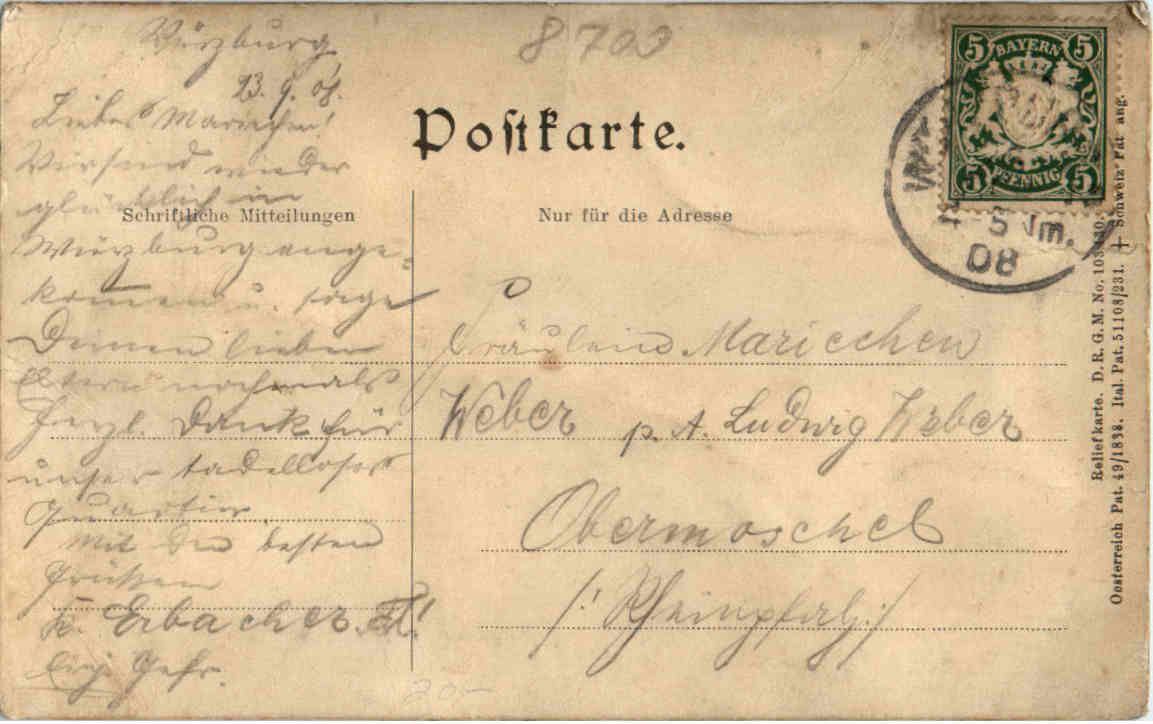 8700
Postkarte.
BAYERN
5 5
PFENNIG
5 5
5 Nm.
08
Würzburg
13. 9. 08.
Liebes Mariechen!
Wir sind wieder
glücklich in
Schriftliche Mitteilungen
Würzburg ange-
kommen u. sage
Deinen lieben
Eltern nochmals
herzl. Dank für
unser tadelloses
Quartier
Mit den besten
Grüßen
Erbacher
Gefr.
Nur für die Adresse
Fräulein Mariechen
Weber p. A. Ludwig Weber
Obermoschel
/: Rheinpfalz :/
Reliefkarte. D. R. G. M. No.
Oesterreich Pat. 49/1838. Ital. Pat. 51108/231. + Schweiz. Pat. ang.
20-